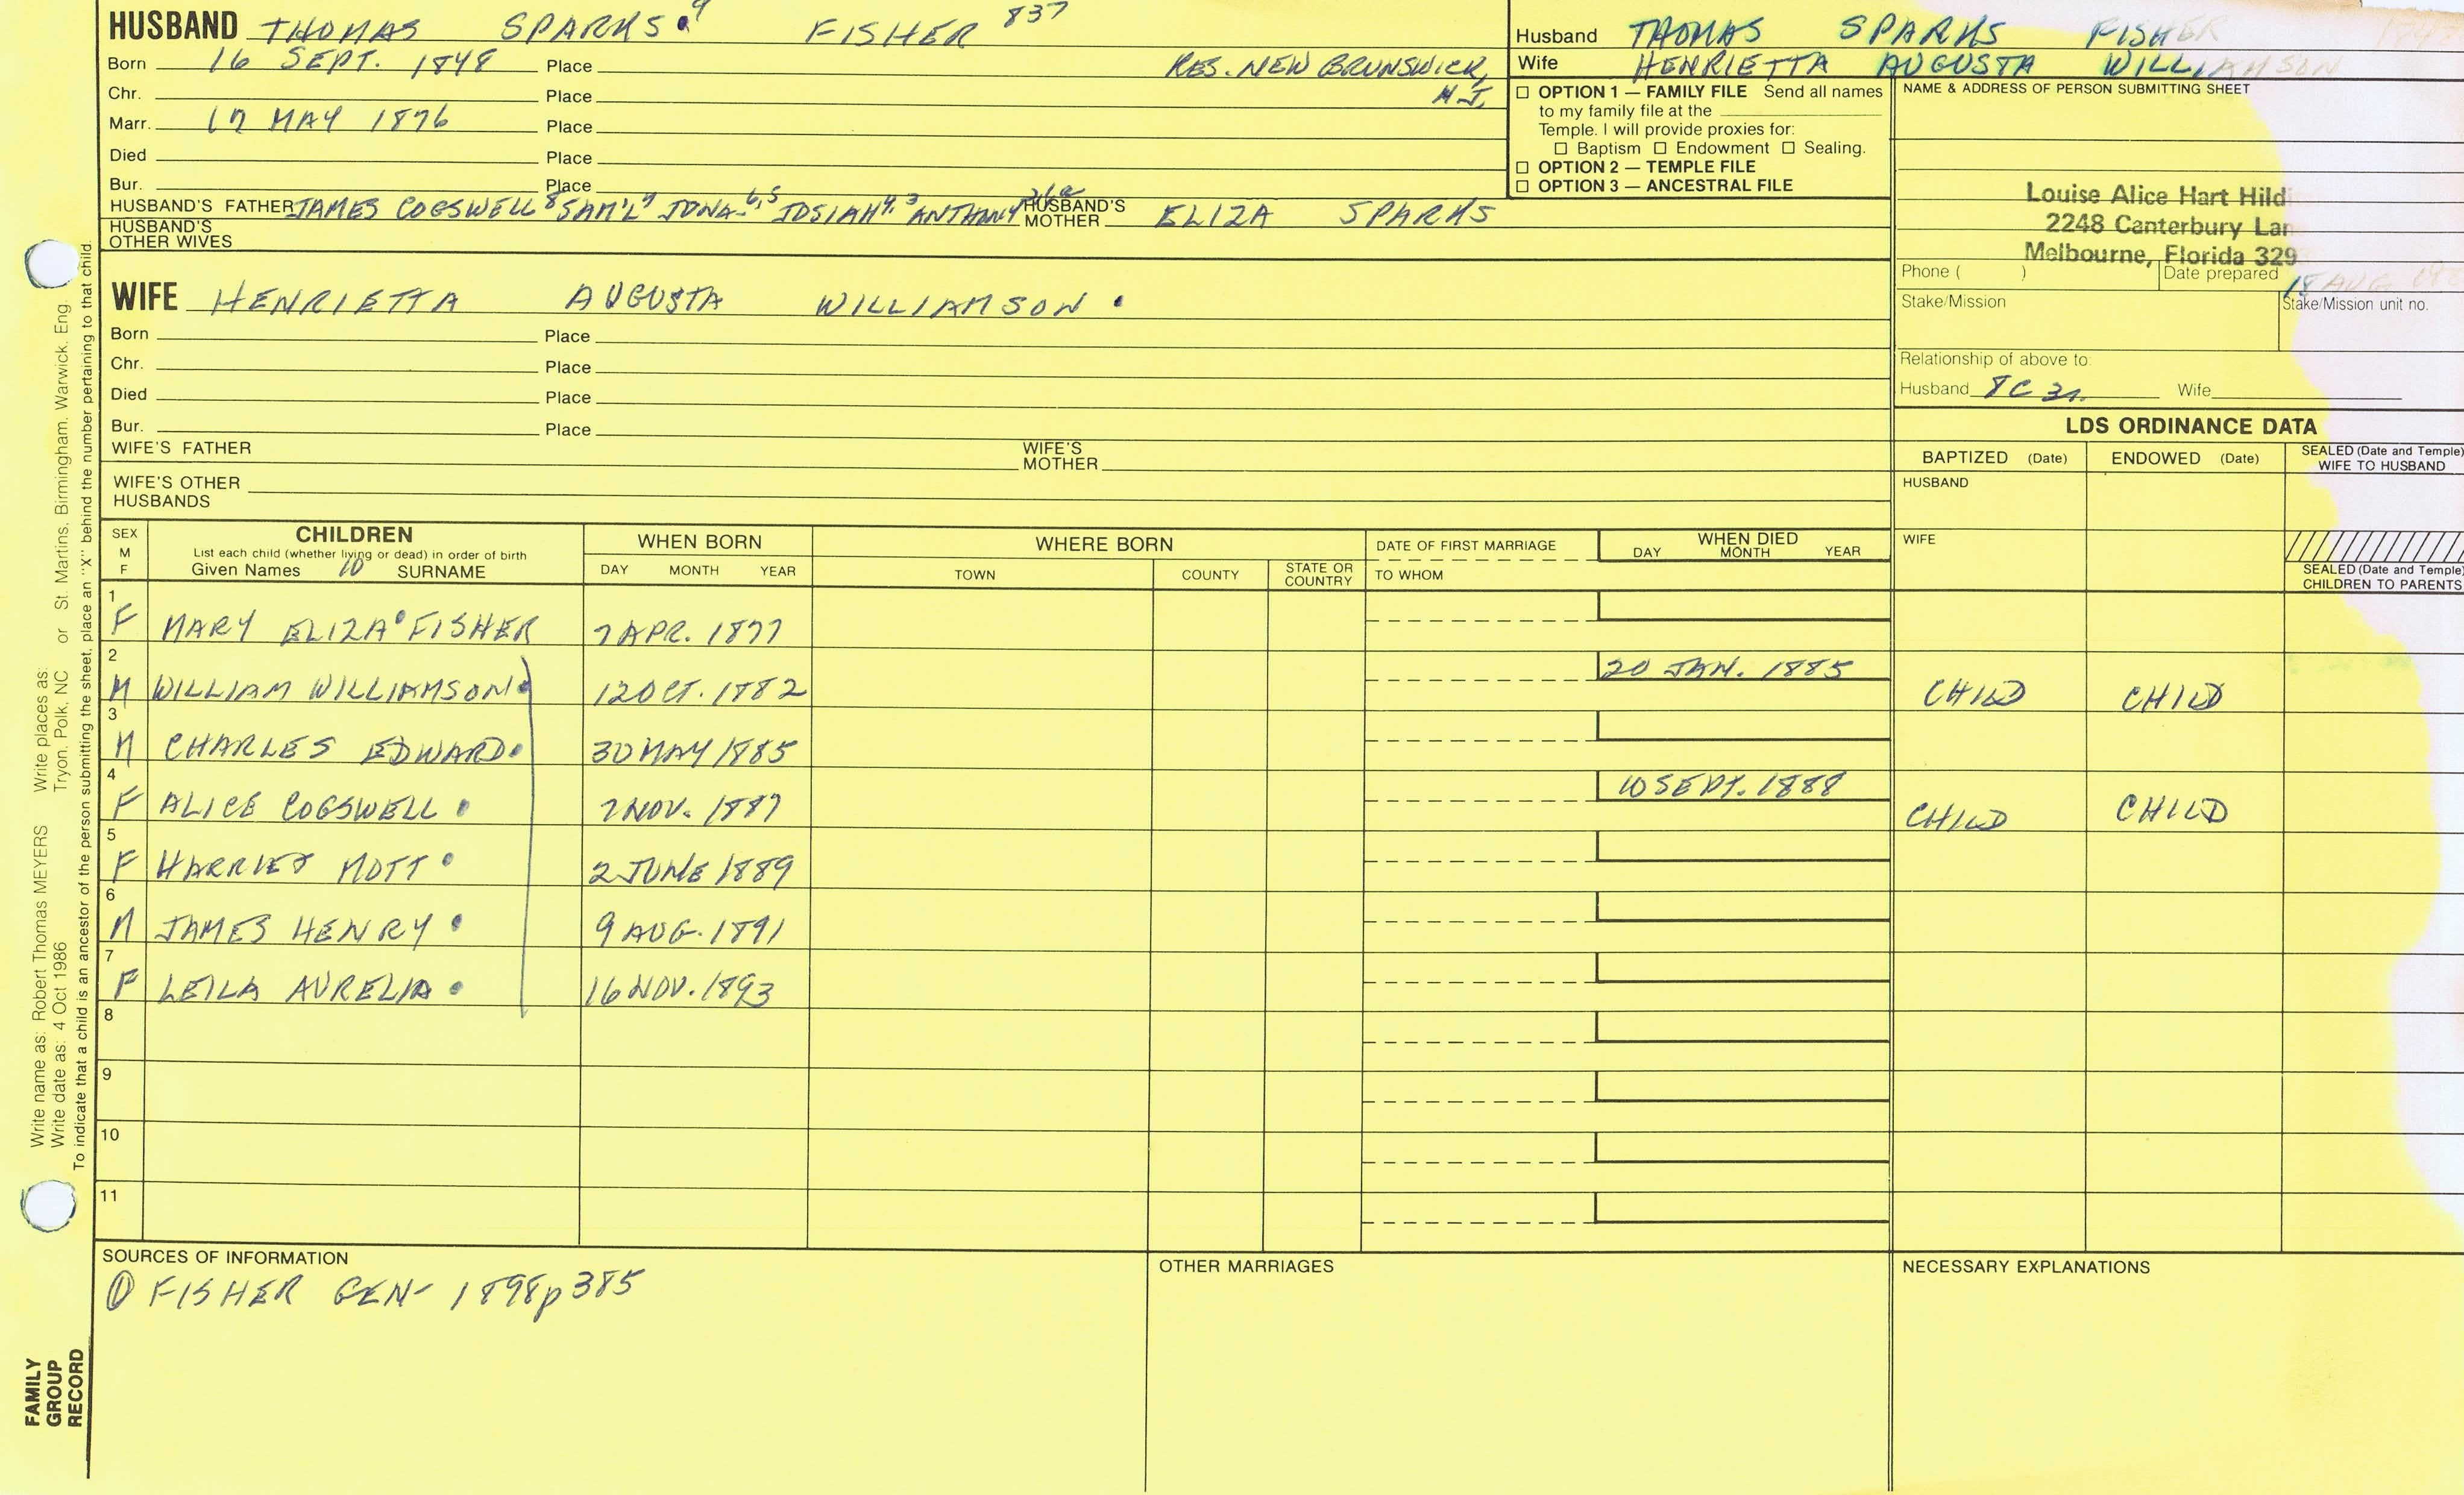 HUSBAND THOMAS SPARKS 9 FISHER 837
Born 16 SEPT. 1848 Place RES. NEW BRUNSWICK,
Chr. Place N.J.
Marr. 17 MAY 1876 Place
Died Place
Bur. Place
HUSBAND'S FATHER JAMES COGSWELL 8 SAM'L 7 JONA- 6,5 JOSIAH 4,3 ANTHONY HUSBAND'S MOTHER ELIZA SPARKS
HUSBAND'S OTHER WIVES
WIFE HENRIETTA AUGUSTA WILLIAMSON
Born Place
Chr. Place
Died Place
Bur. Place
WIFE'S FATHER WIFE'S MOTHER
WIFE'S OTHER HUSBANDS
Husband THOMAS SPARKS FISHER
Wife HENRIETTA AUGUSTA WILLIAMSON
OPTION 1 — FAMILY FILE Send all names
to my family file at the
Temple. I will provide proxies for:
Baptism Endowment Sealing.
OPTION 2 — TEMPLE FILE
OPTION 3 — ANCESTRAL FILE
NAME & ADDRESS OF PERSON SUBMITTING SHEET
Louise Alice Hart Hild
2248 Canterbury Lan
Melbourne, Florida 329
Phone ( ) Date prepared 18 AUG
Stake/Mission Stake/Mission unit no.
Relationship of above to:
Husband 8C 3r. Wife
LDS ORDINANCE DATA
BAPTIZED (Date) ENDOWED (Date) SEALED (Date and Temple) WIFE TO HUSBAND
HUSBAND
WIFE
SEALED (Date and Temple) CHILDREN TO PARENTS
SEX M F
CHILDREN
List each child (whether living or dead) in order of birth
Given Names 10 SURNAME
WHEN BORN
DAY MONTH YEAR
WHERE BORN
TOWN COUNTY STATE OR COUNTRY
DATE OF FIRST MARRIAGE
TO WHOM
WHEN DIED
DAY MONTH YEAR
1 F MARY ELIZA FISHER 7 APR. 1877
2 M WILLIAM WILLIAMSON 12 OCT. 1882 20 JAN. 1885 CHILD CHILD
3 M CHARLES EDWARD 30 MAY 1885
4 F ALICE COGSWELL 7 NOV. 1887 10 SEPT. 1888 CHILD CHILD
5 F HARRIET MOTT 2 JUNE 1889
6 M JAMES HENRY 9 AUG. 1891
7 F LEILA AURELIA 16 NOV. 1893
8
9
10
11
SOURCES OF INFORMATION
① FISHER GEN- 1898 p 385
OTHER MARRIAGES
NECESSARY EXPLANATIONS
Write name as: Robert Thomas MEYERS Write places as: or St. Martins, Birmingham, Warwick, Eng.
Write date as: 4 Oct 1986 Tryon, Polk, NC
To indicate that a child is an ancestor of the person submitting the sheet, place an "X" behind the number pertaining to that child.
FAMILY GROUP RECORD